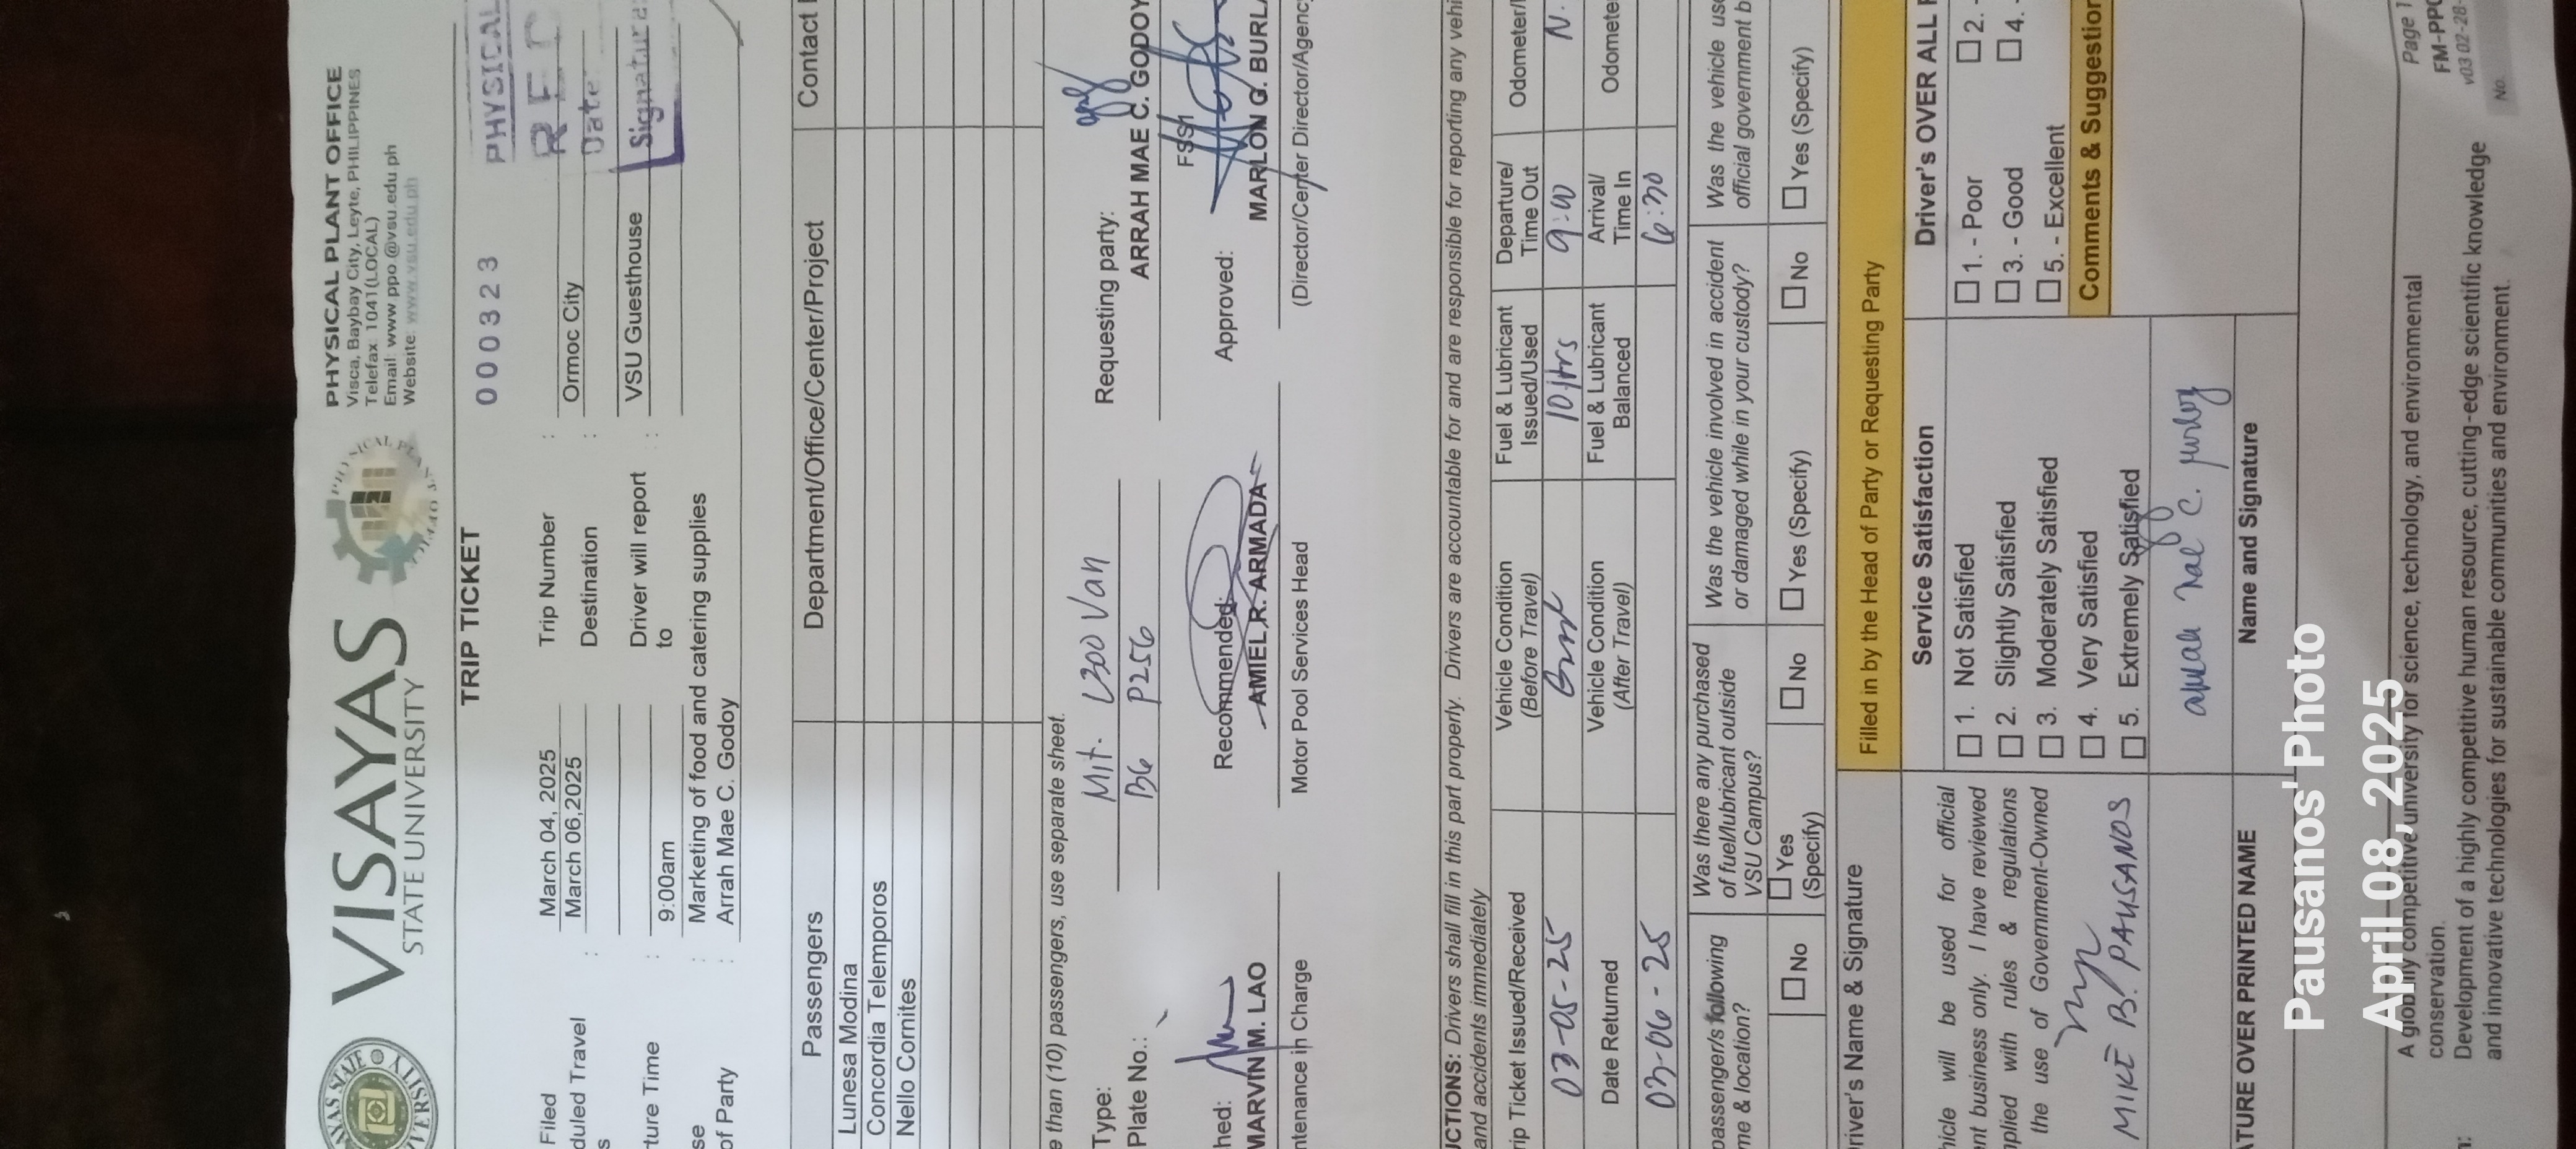 VISAYAS
STATE UNIVERSITY
PHYSICAL PLANT OFFICE
Visca, Baybay City, Leyte, PHILIPPINES
Telefax: 1041(LOCAL)
Email: www.ppo.@vsu.edu.ph
Website: www.vsu.edu.ph
TRIP TICKET
000323
PHYSICAL
Date
Signature:
Filed March 04, 2025 Trip Number :
duled Travel : March 06,2025 Destination : Ormoc City
s
ture Time : 9:00am Driver will report to : VSU Guesthouse
se : Marketing of food and catering supplies
of Party : Arrah Mae C. Godoy
Passengers Department/Office/Center/Project Contact
Lunesa Modina
Concordia Telemporos
Nello Cornites
e than (10) passengers, use separate sheet.
Type: Mit. L300 Van
Plate No.: B6 P256
Requesting party:
ARRAH MAE C. GODOY
FSSI
hed: Recommended: Approved:
MARVIN M. LAO AMIEL R. ARMADA MARLON G. BURLA
ntenance in Charge Motor Pool Services Head (Director/Center Director/Agency
JCTIONS: Drivers shall fill in this part properly. Drivers are accountable for and are responsible for reporting any vehi
and accidents immediately
rip Ticket Issued/Received Vehicle Condition (Before Travel) Fuel & Lubricant Issued/Used Departure/ Time Out Odometer/
03-05-25 Good 10 ltrs 9:40 N.
Date Returned Vehicle Condition (After Travel) Fuel & Lubricant Balanced Arrival/ Time In Odomete
03-06-25 6:30
passenger/s following
me & location?
Was there any purchased
of fuel/lubricant outside
VSU Campus?
Was the vehicle involved in accident
or damaged while in your custody?
Was the vehicle use
official government b
No Yes (Specify) No Yes (Specify) No Yes (Specify)
river's Name & Signature Filled in by the Head of Party or Requesting Party
hicle will be used for official
nt business only. I have reviewed
mplied with rules & regulations
the use of Government-Owned
MIKE B. PAUSANOS
TURE OVER PRINTED NAME
Service Satisfaction
1. Not Satisfied
2. Slightly Satisfied
3. Moderately Satisfied
4. Very Satisfied
5. Extremely Satisfied
Name and Signature
Driver's OVER ALL
1. - Poor 2. -
3. - Good 4. -
5. - Excellent
Comments & Suggestion
A globally competitive university for science, technology, and environmental
conservation.
Development of a highly competitive human resource, cutting-edge scientific knowledge
and innovative technologies for sustainable communities and environment.
Page 1
FM-PPO
v03 02-28-
No.
Pausanos' Photo
April 08, 2025